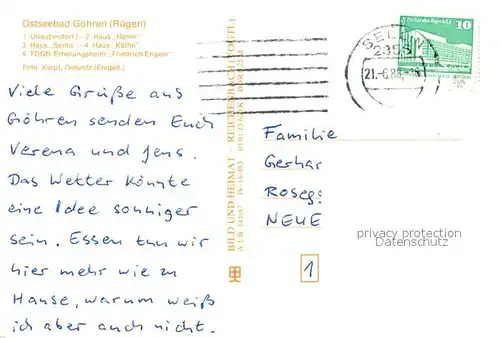 Ostseebad Göhren (Rügen)
1 Urlauberdorf - 2 Haus „Henni"
3 Haus „Senta" - 4 Haus „Käthe"
5 FDGB-Erholungsheim „Friedrich Engels"
Foto: Karpf, Oelsnitz (Erzgeb.)
Viele Grüße aus
Göhren senden Euch
Verena und Jens.
Das Wetter könnte
eine Idee sonniger
sein. Essen tun wir
hier mehr wie zu
Hause, warum weiß
ich aber auch nicht.
BILD UND HEIMAT - REICHENBACH (VOGTL)
A 1/B 141/87 IV-14-483
SELLIN
2356
21.-6.88
Palast der Republik
10
DDR
Familie
Gerhar
Roseg
NEUE
1
privacy protection
Datenschutz